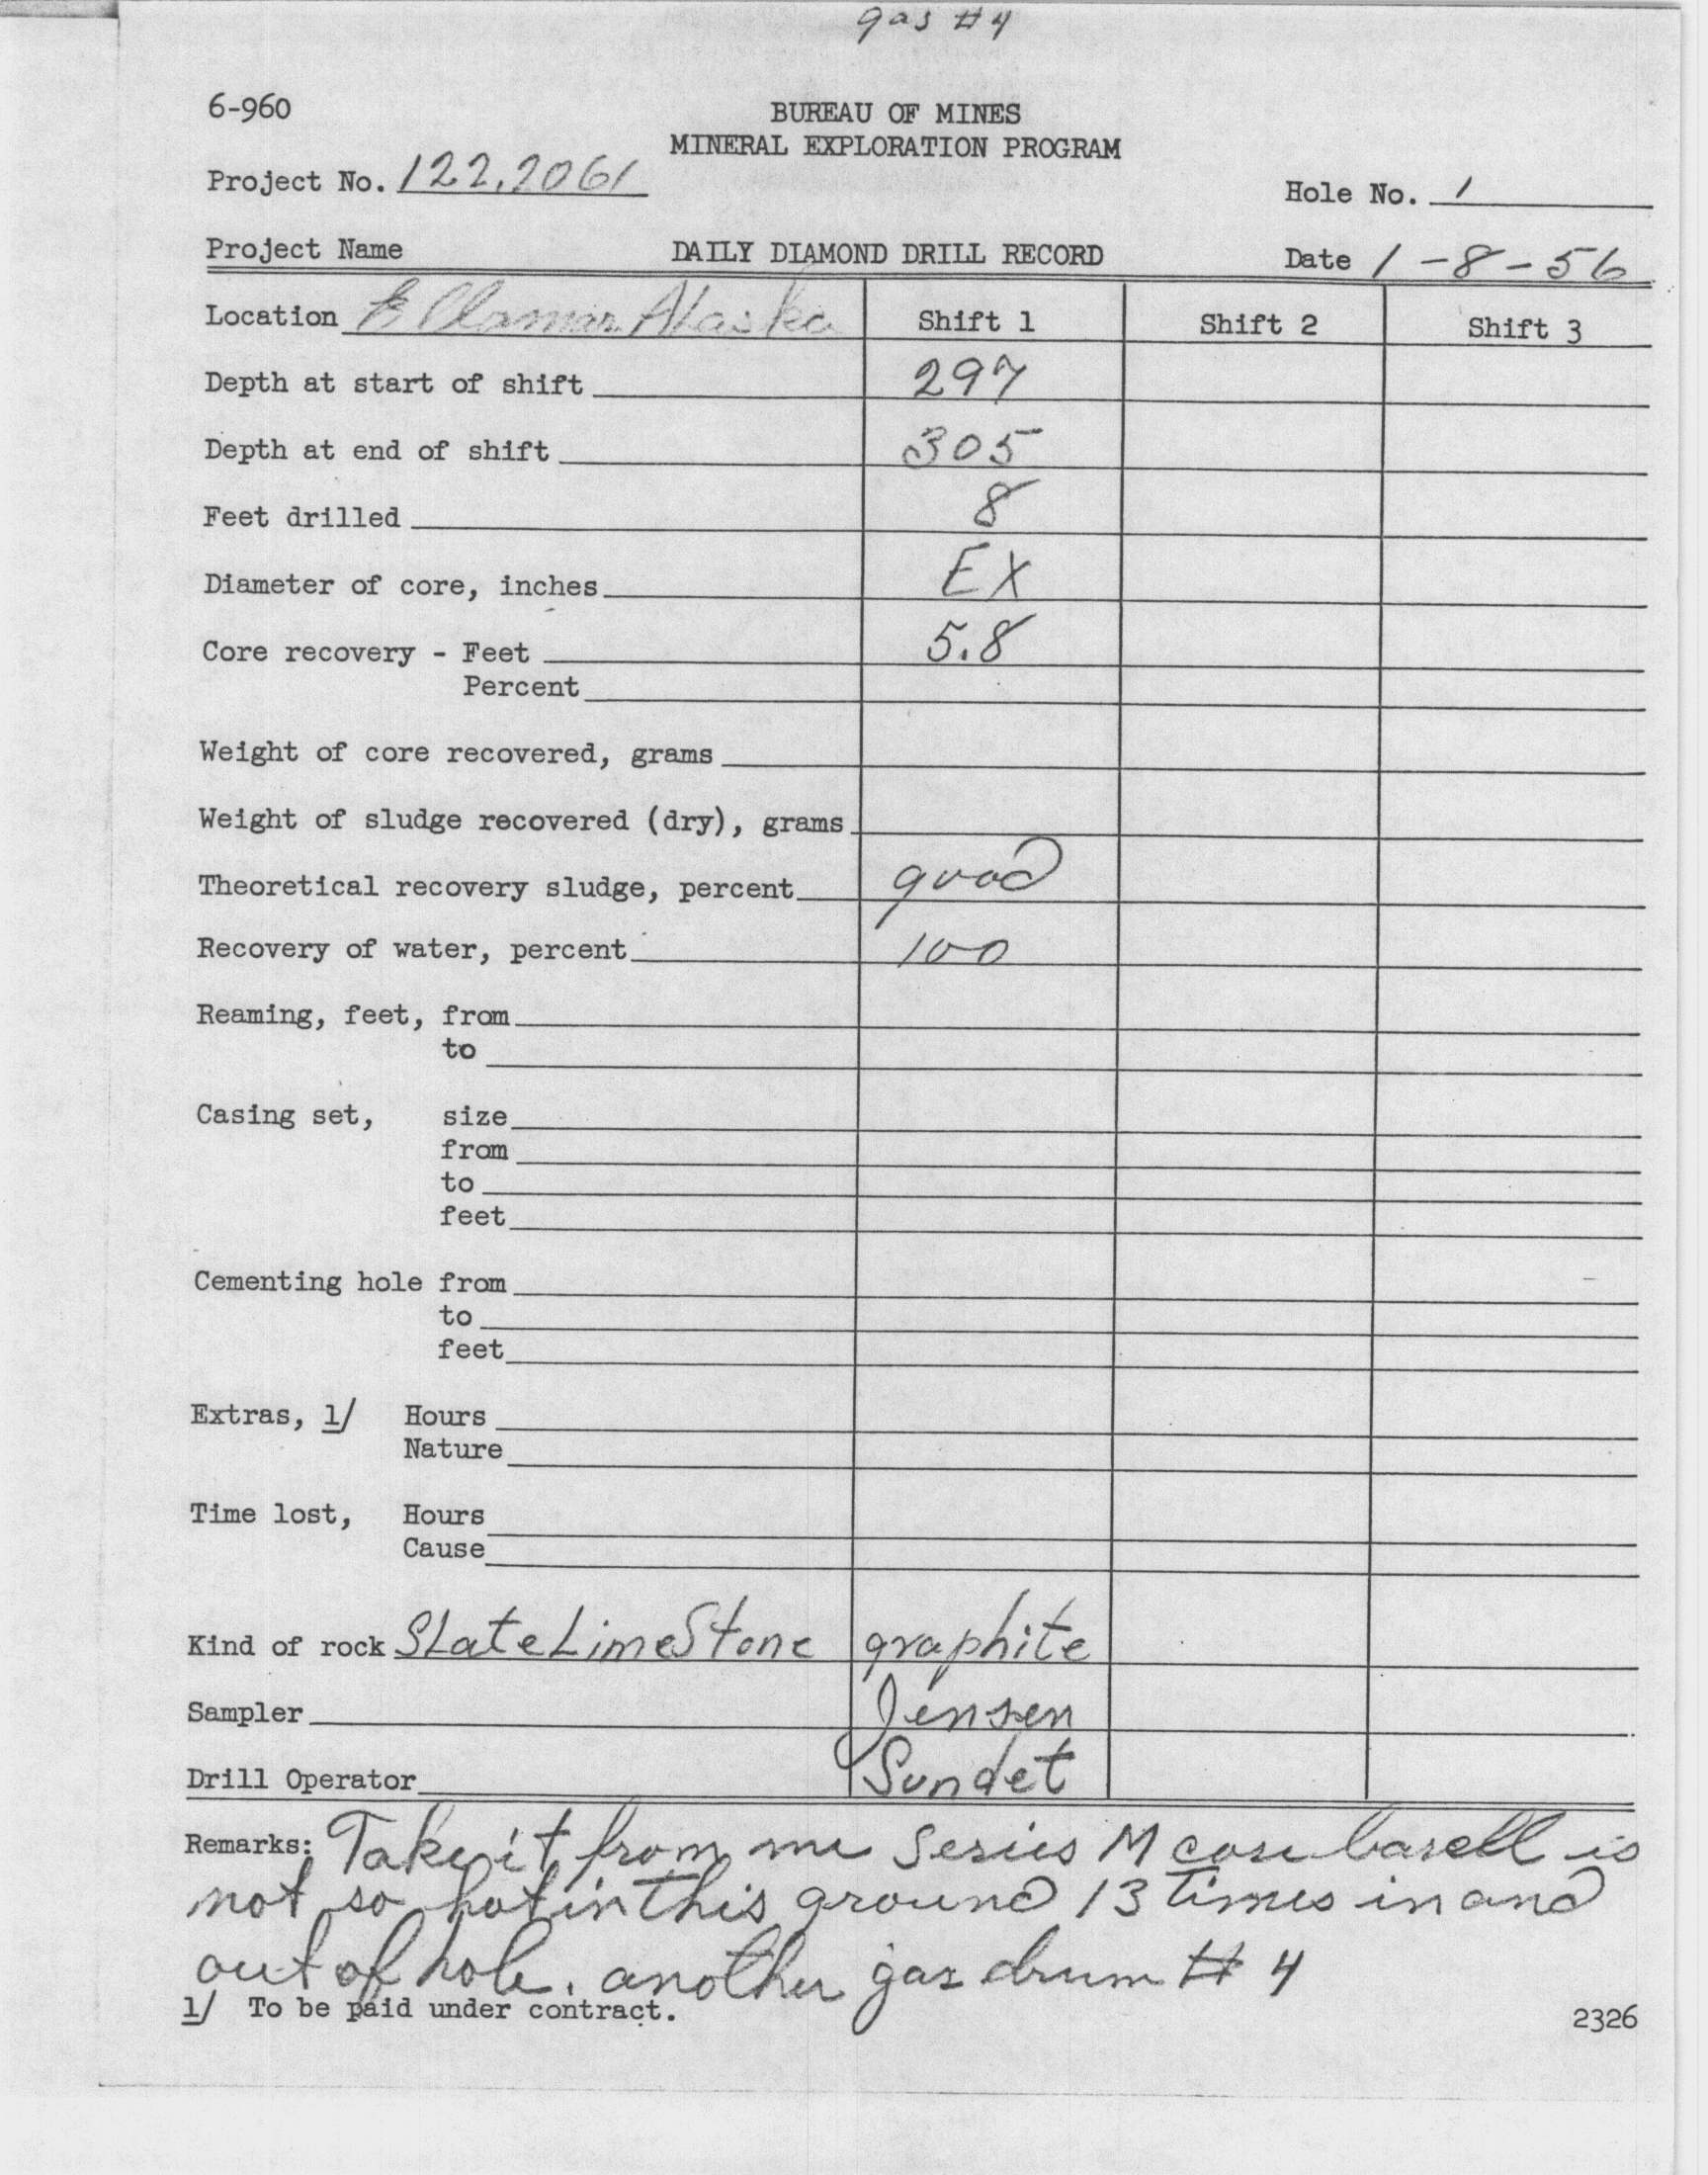 gas # 4
6-960
BUREAU OF MINES
MINERAL EXPLORATION PROGRAM
Project No. 122.2061
Hole No. 1
Project Name DAILY DIAMOND DRILL RECORD Date 1-8-56
Location Ellamar Alaska Shift 1 Shift 2 Shift 3
Depth at start of shift 297
Depth at end of shift 305
Feet drilled 8
Diameter of core, inches EX
Core recovery - Feet 5.8
Percent
Weight of core recovered, grams
Weight of sludge recovered (dry), grams
Theoretical recovery sludge, percent good
Recovery of water, percent 100
Reaming, feet, from
to
Casing set, size
from
to
feet
Cementing hole from
to
feet
Extras, 1/ Hours
Nature
Time lost, Hours
Cause
Kind of rock Slate LimeStone graphite
Sampler Jensen
Drill Operator Sundet
Remarks: Take it from me Series M core barell is
not so hot in this ground 13 times in and
out of hole. another gas drum # 4
1/ To be paid under contract.
2326